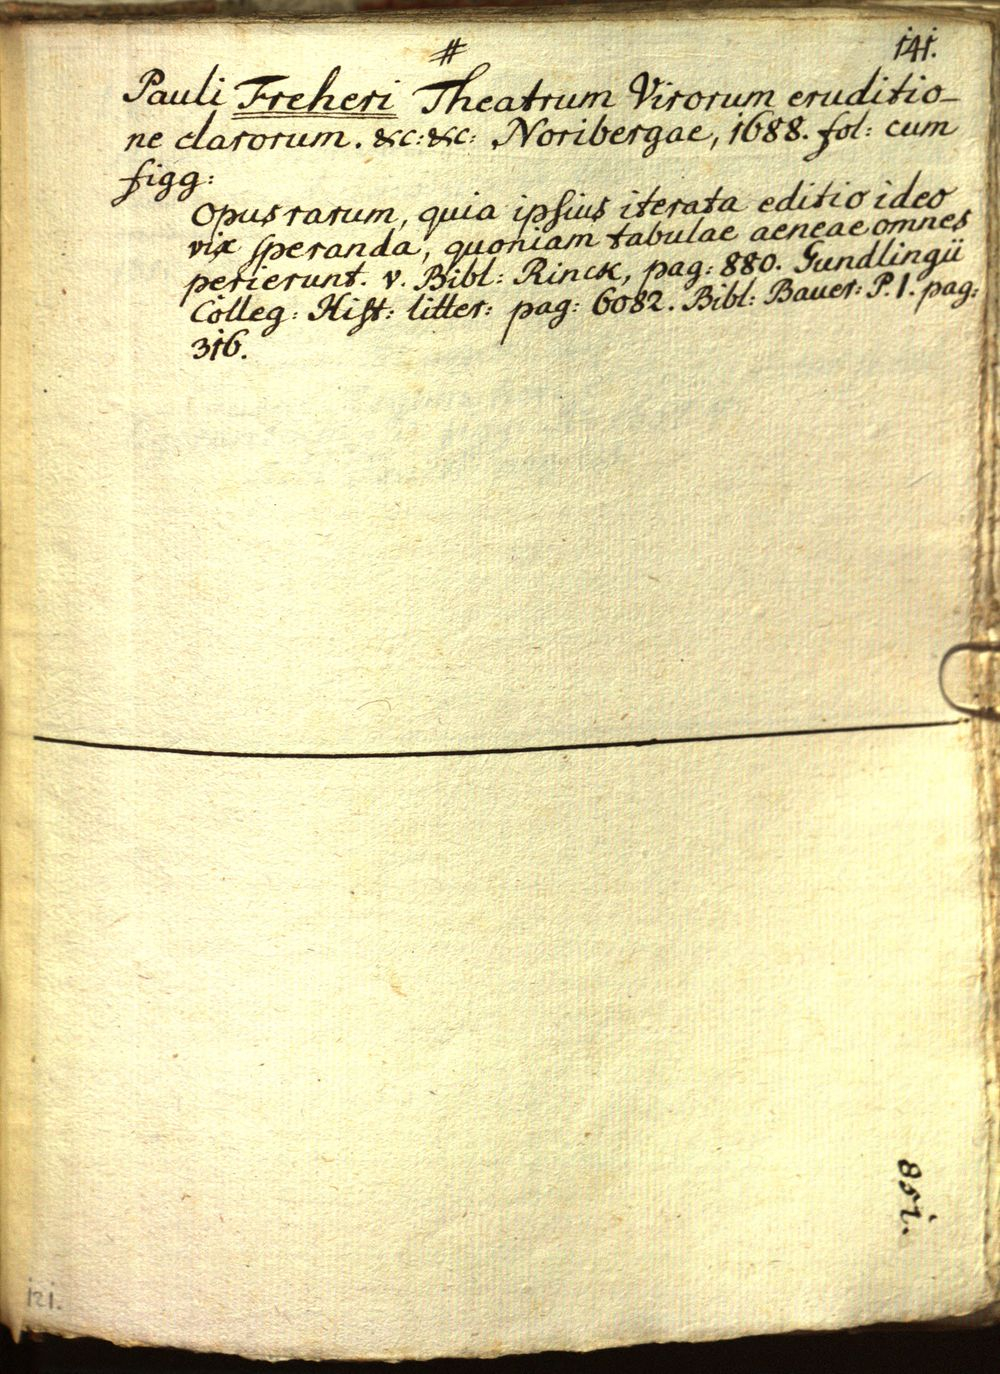 #
141.
Pauli Freheri Theatrum Virorum eruditio-
ne clarorum. &c: &c: Noribergae, 1688. fol: cum
figg:
Opus rarum, quia ipsius iterata editio ideo
vix speranda, quoniam tabulae aeneae omnes
perierunt. v. Bibl: Rinck, pag: 880. Gundlingii
Colleg: Hist: litter: pag: 6082. Bibl: Bauer: P. 1. pag:
316.
851.
121.